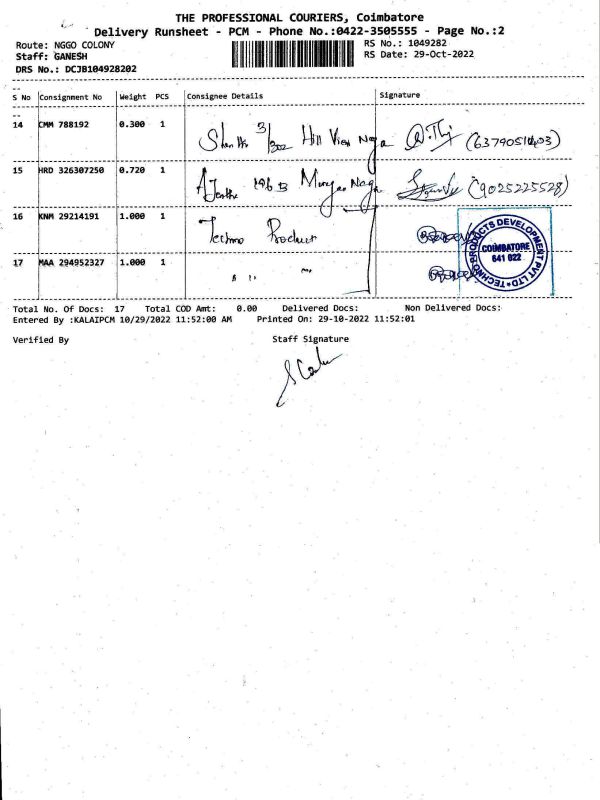 THE PROFESSIONAL COURIERS, Coimbatore
Delivery Runsheet - PCM - Phone No.:0422-3505555 - Page No.:2
Route: NGGO COLONY
RS No.: 1049282
Staff: GANESH
RS Date: 29-Oct-2022
DRS No.: DCJB104928202
S No Consignment No Weight PCS Consignee Details Signature
14 CMM 788192 0.300 1 3/302 Hill View Naga
15 HRD 326307250 0.720 1 196 B Naga (9025225528)
16 KNM 29214191 1.000 1 Techno Product
17 MAA 294952327 1.000 1 " "
TECHNO PRODUCTS DEVELOPMENT PVT LTD
COIMBATORE
641 022
Total No. Of Docs: 17 Total COD Amt: 0.00 Delivered Docs: Non Delivered Docs:
Entered By :KALAIPCM 10/29/2022 11:52:00 AM Printed On: 29-10-2022 11:52:01
Verified By Staff Signature